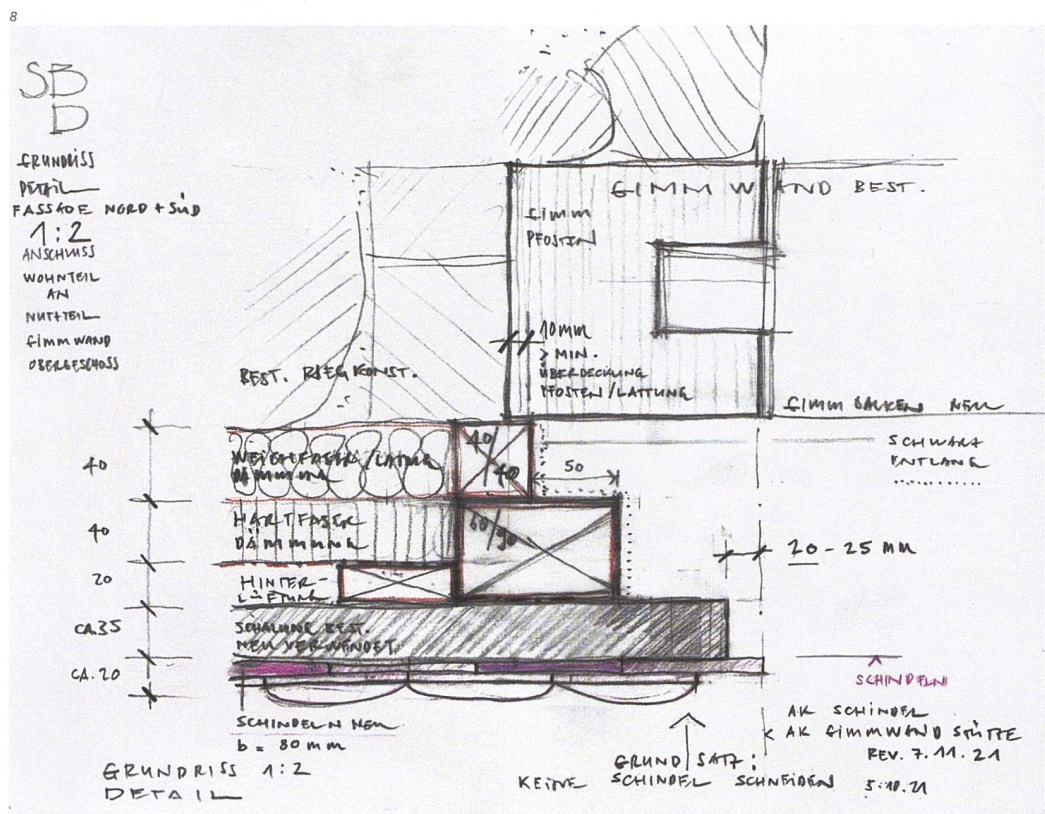 8
SB
D
GRUNDRISS
DETAIL
FASSADE NORD + SÜD
1:2
ANSCHLUSS
WOHNTEIL
AN
NUTZTEIL
GIMMWAND
OBERGESCHOSS
GIMMWAND BEST.
GIMM
PFOSTEN
10mm
> MIN.
ÜBERDECKUNG
PFOSTEN / LATTUNG
BEST. RIEGKONST.
GIMM BALKEN NEU
SCHWARZ
ENTLANG
40
WEICHFASER /
DÄMMUNG
40/
40
50
40
HARTFASER
DÄMMUNG
60/90
20 - 25 mm
20
HINTER-
LÜFTUNG
CA.35
SCHALUNG BEST.
NEU VERWENDET
CA.20
SCHINDELN
SCHINDELN NEU
b = 80 mm
AK SCHINDEL
< AK GIMMWAND STÜTZE
REV. 7.11.21
5.10.21
GRUNDSATZ:
KEINE SCHINDEL SCHNEIDEN
GRUNDRISS 1:2
DETAIL